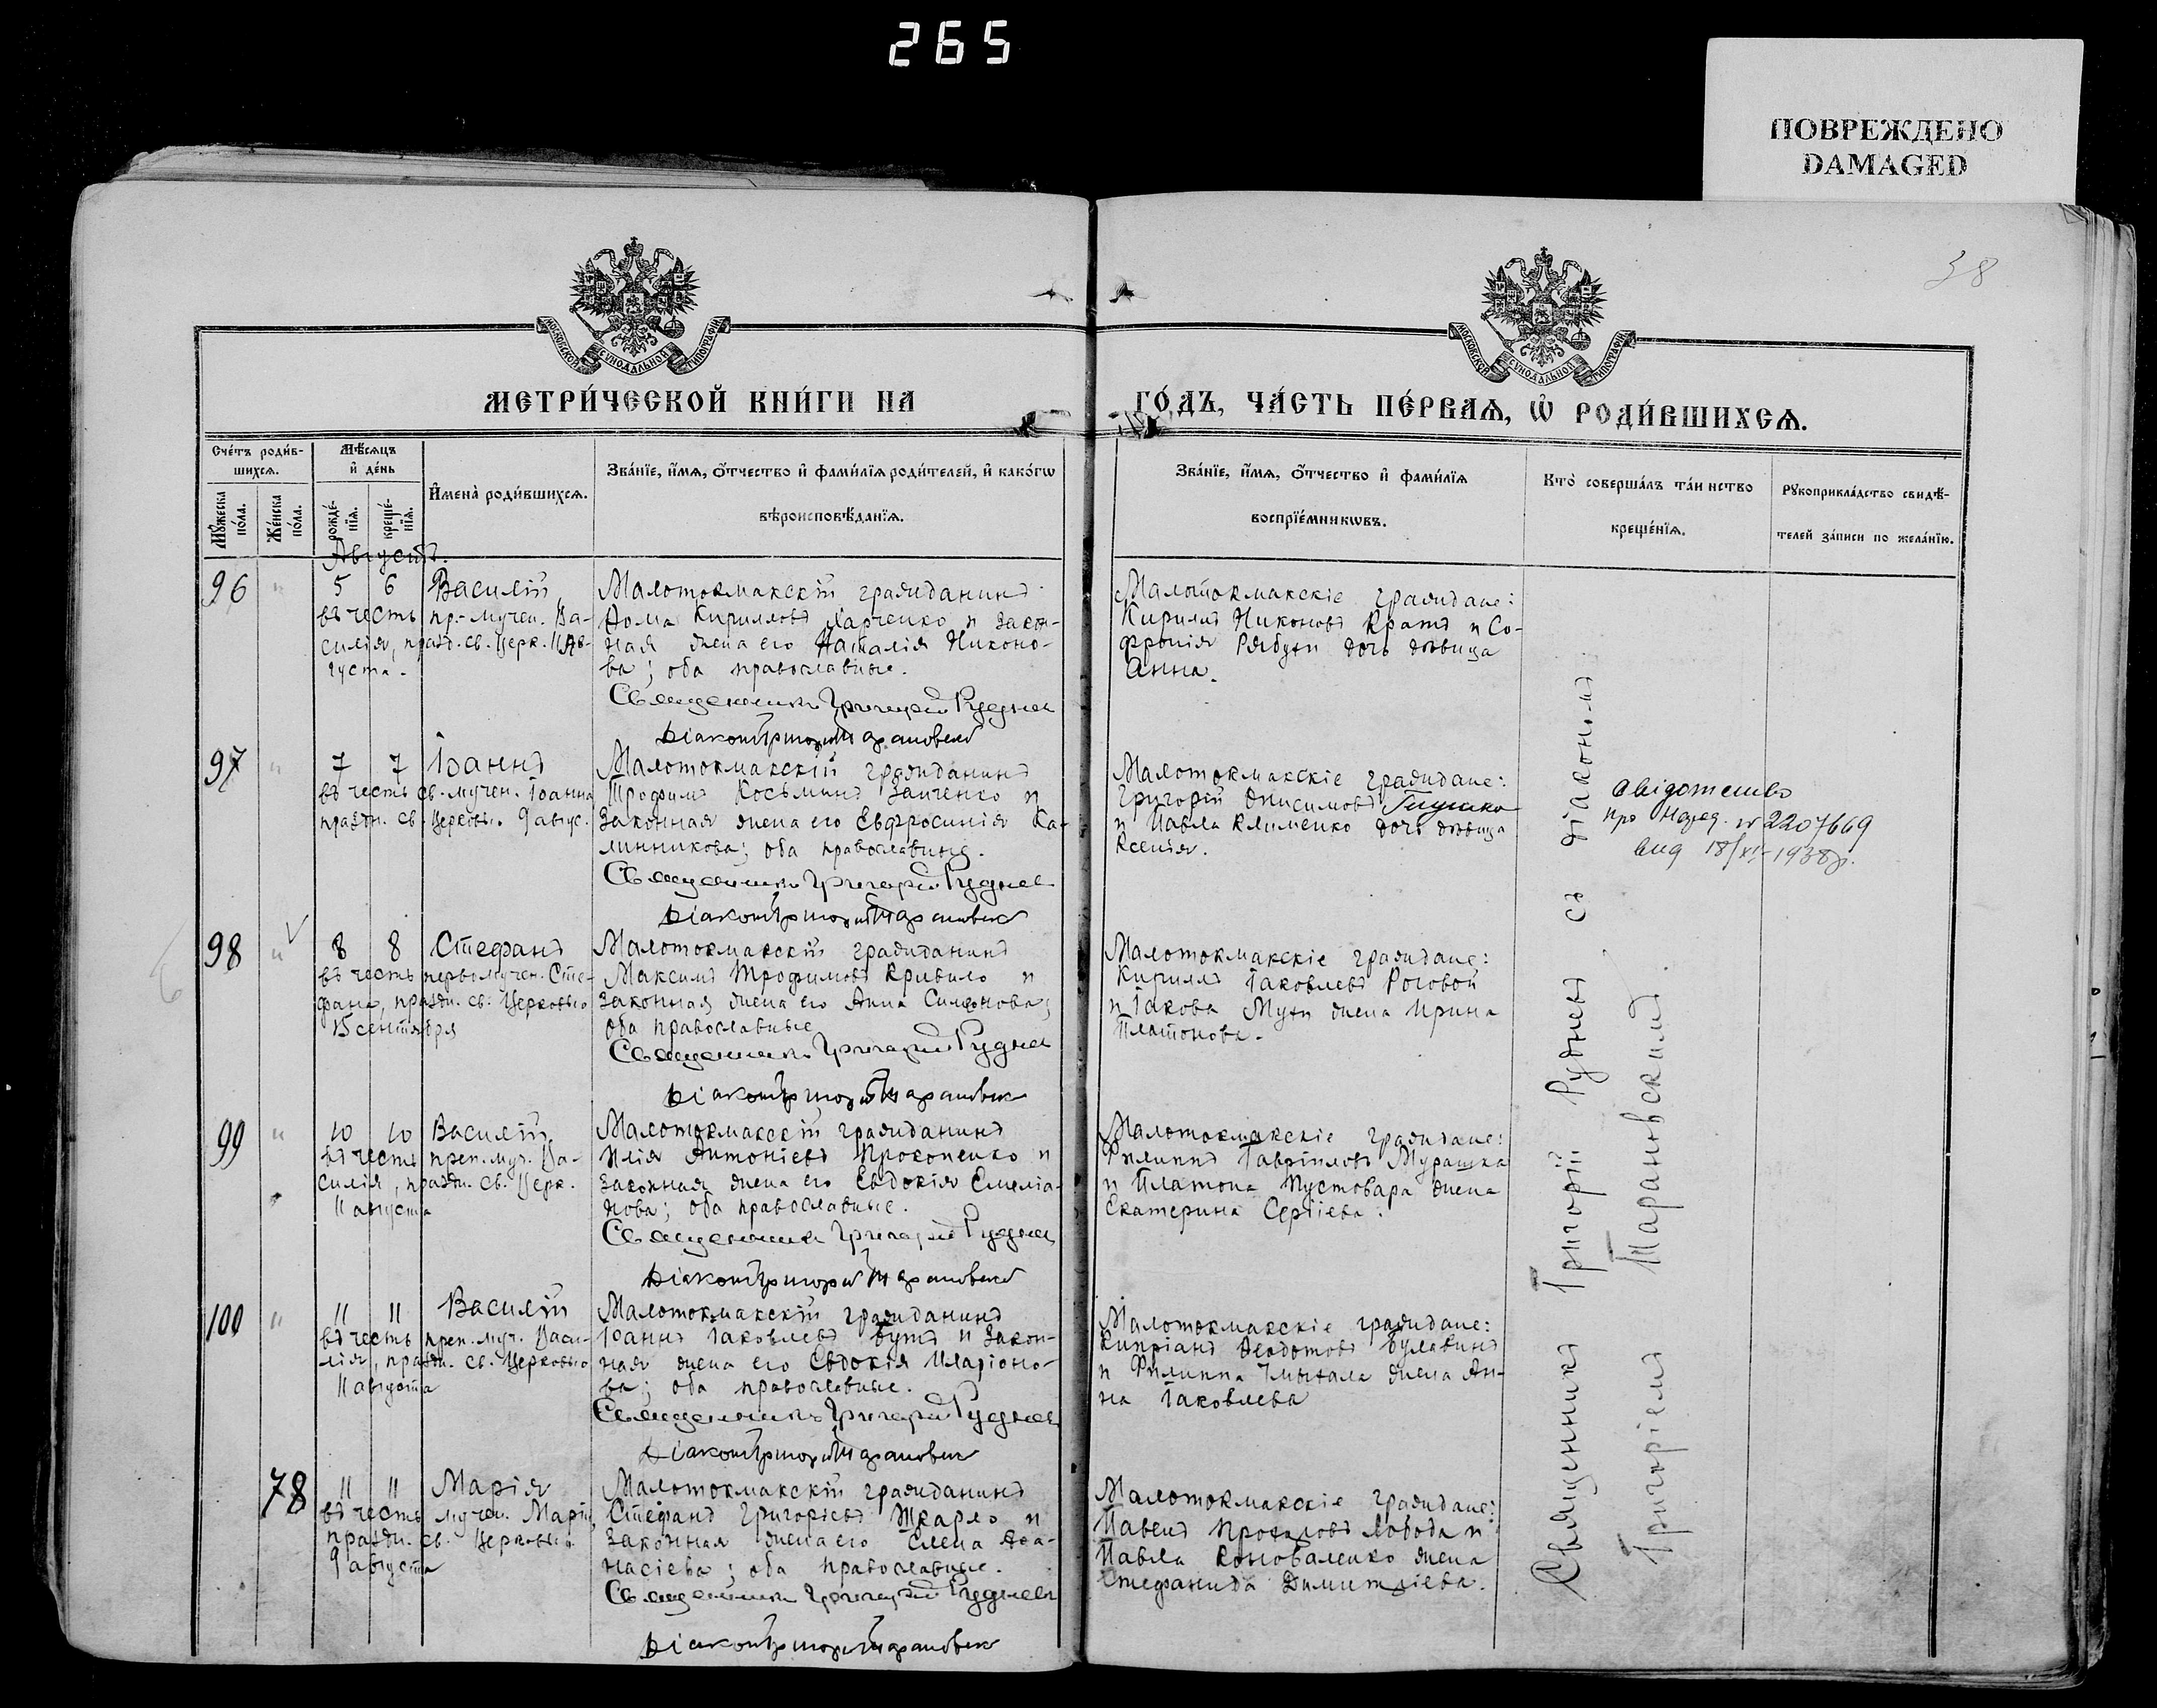 265
ПОВРЕЖДЕНО
DAMAGED
38
МОСКОВСКОЙ СѴНОДАЛЬНОЙ ТИПОГРАФІИ
МОСКОВСКОЙ СѴНОДАЛЬНОЙ ТИПОГРАФІИ
МЕТРИ́ЧЕСКОЙ КНИ́ГИ НА
ГО́ДЪ, ЧА́СТЬ ПЕ́РВАѦ, Ѡ РОДИ́ВШИХСѦ.
Сче́тъ роди́в-
шихсѧ.
Мꙋ́жеска
по́ла.
Же́нска
по́ла.
Мѣ́сѧцъ
и де́нь
рожде́-
нїѧ.
креще́-
нїѧ.
Имена̀ роди́вшихсѧ.
Зва́нїе, и́мѧ, о́тчество и фами́лїѧ роди́телей, и како́гѡ
вѣроисповѣ́данїѧ.
Зва́нїе, и́мѧ, о́тчество и фами́лїѧ
воспрїе́мникѡвъ.
Кто̀ соверша́лъ та́инство
креще́нїѧ.
Рꙋкоприкла́дство свидѣ́-
телей за́писи по жела́нїю.
Августъ.
96 " 5 6 Василій
въ честь пр.-мучен. Ва-
силія, празд. св. Церк. 11 Ав-
густа.
Малотокмакскій гражданинъ
Ѳома Кирилловъ Харченко и закон-
ная жена его Наталія Никоно-
ва; оба православные.
Священникъ Григорій Рудневъ
Діаконъ Григорій Тарановскій
Малотокмакскіе граждане:
Кирилъ Никоновъ Кратъ и Со-
фронія Рябухи дочь дѣвица
Анна.
97 " 7 7 Іоаннъ
въ честь св. мучен. Іоанна
праздн. св. Церковью. 9 авгус.
Малотокмакскій гражданинъ
Трофимъ Косьминъ Заиченко и
законная жена его Евфросинія Ка-
линникова; оба православные.
Священникъ Григорій Рудневъ
Діаконъ Григорій Тарановскій
Малотокмакскіе граждане:
Григорій Онисимовъ Глушко
и Павла Клименко дочь дѣвица
Ксенія.
свідотство
про народ. № 2207669
вид 18/XI-1938 р.
98 " 8 8 Стефанъ
въ честь первомучен. Сте-
фана, праздн. св. Церковью
15 сентября
Малотокмакскій гражданинъ
Максимъ Трофимовъ Кривило и
законная жена его Анна Симонова;
оба православные
Священникъ Григорій Рудневъ
Діаконъ Григорій Тарановскій
Малотокмакскіе граждане:
Кириллъ Іаковлевъ Роговой
и Іакова Мухи жена Ирина
Платонова.
99 " 10 10 Василій
въ честь преп. муч. Ва-
силія, праздн. св. Церк.
11 августа
Малотокмакскій гражданинъ
Илія Антоніевъ Прокопенко и
законная жена его Евдокія Емеліа-
нова; оба православные.
Священникъ Григорій Рудневъ
Діаконъ Григорій Тарановскій
Малотокмакскіе граждане:
Филиппъ Гавріиловъ Мурашка
и Платона Пустовара жена
Екатерина Сергіева.
100 " 11 11 Василій
въ честь преп. муч. Васи-
лія, праздн. св. Церковью
11 августа
Малотокмакскій гражданинъ
Іоаннъ Іаковлевъ Бутъ и закон-
ная жена его Евдокія Иларіоно-
ва; оба православные.
Священникъ Григорій Рудневъ
Діаконъ Григорій Тарановскій
Малотокмакскіе граждане:
Кипріанъ Ѳеодотовъ Булавинъ
и Филиппа жена Ан-
на Іаковлева
78 11 11 Марія
въ честь мучен. Маріи,
праздн. св. Церковью
9 августа
Малотокмакскій гражданинъ
Стефанъ Григоріевъ Шкарло и
законная жена его Елена Аѳа-
насіева; оба православные.
Священникъ Григорій Рудневъ
Діаконъ Григорій Тарановскій
Малотокмакскіе граждане:
Павелъ Лобода и
Павла Коноваленко жена
Стефанида Димитріева.
Священникъ Григорій Рудневъ съ діакономъ
Григоріемъ Тарановскимъ.